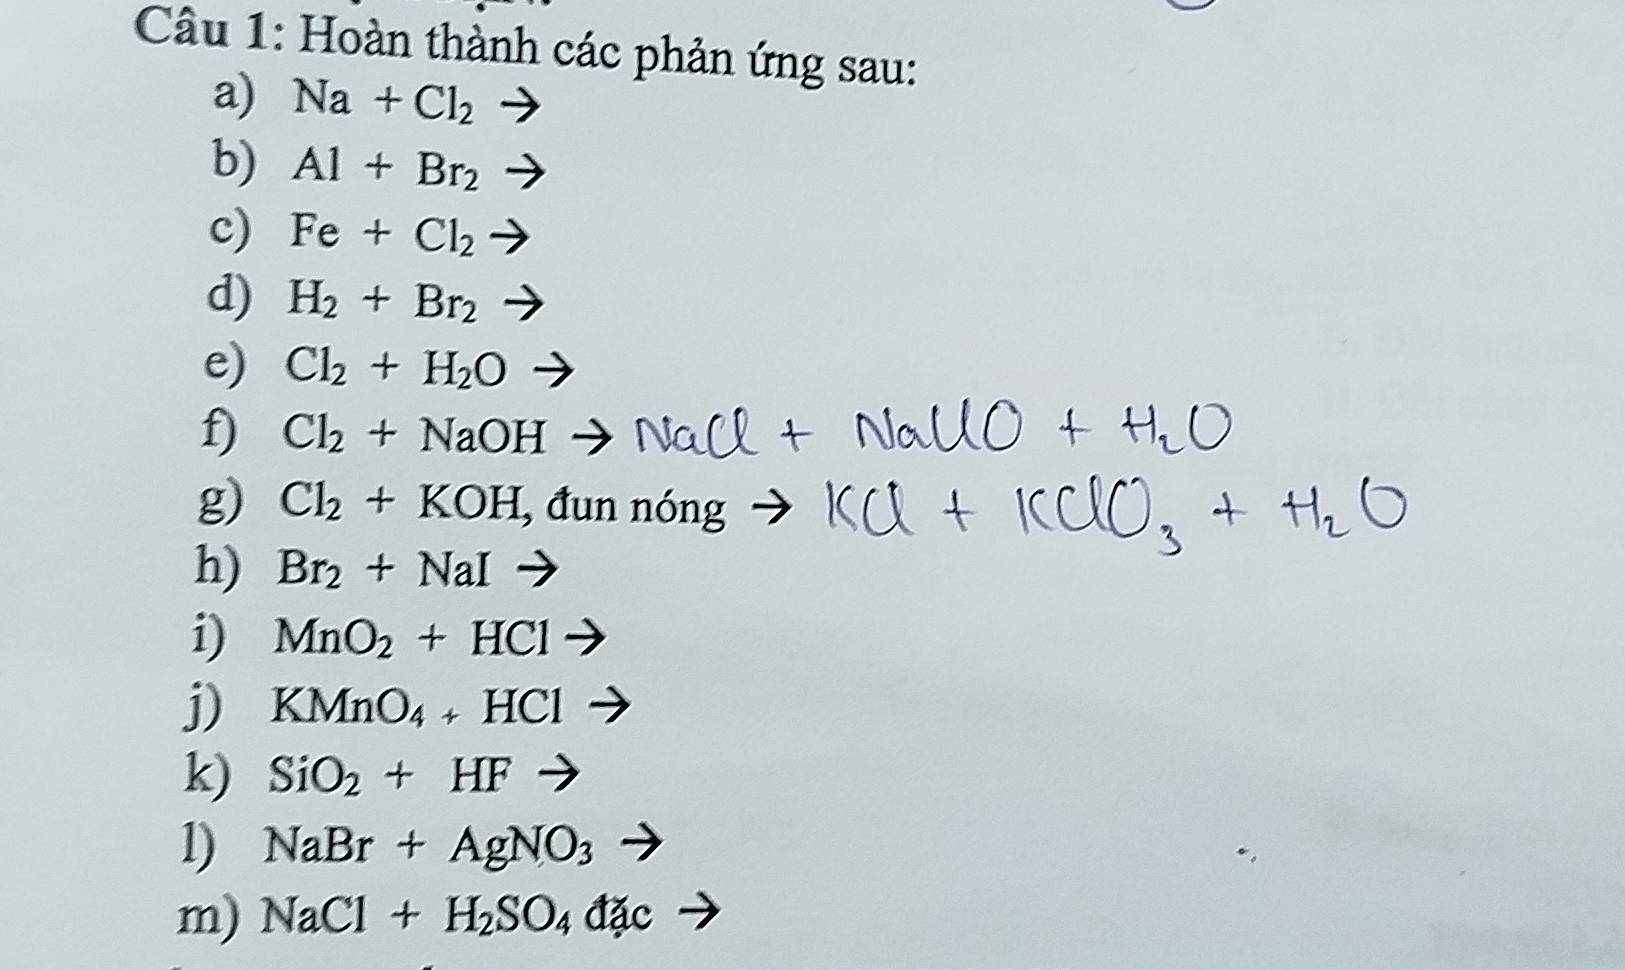 Câu 1: Hoàn thành các phản ứng sau:
a) Na + Cl₂ →
b) Al + Br₂ →
c) Fe + Cl₂ →
d) H₂ + Br₂ →
e) Cl₂ + H₂O →
f) Cl₂ + NaOH → NaCl + NaClO + H₂O
g) Cl₂ + KOH, đun nóng → KCl + KClO₃ + H₂O
h) Br₂ + NaI →
i) MnO₂ + HCl →
j) KMnO₄ + HCl →
k) SiO₂ + HF →
l) NaBr + AgNO₃ →
m) NaCl + H₂SO₄ đặc →